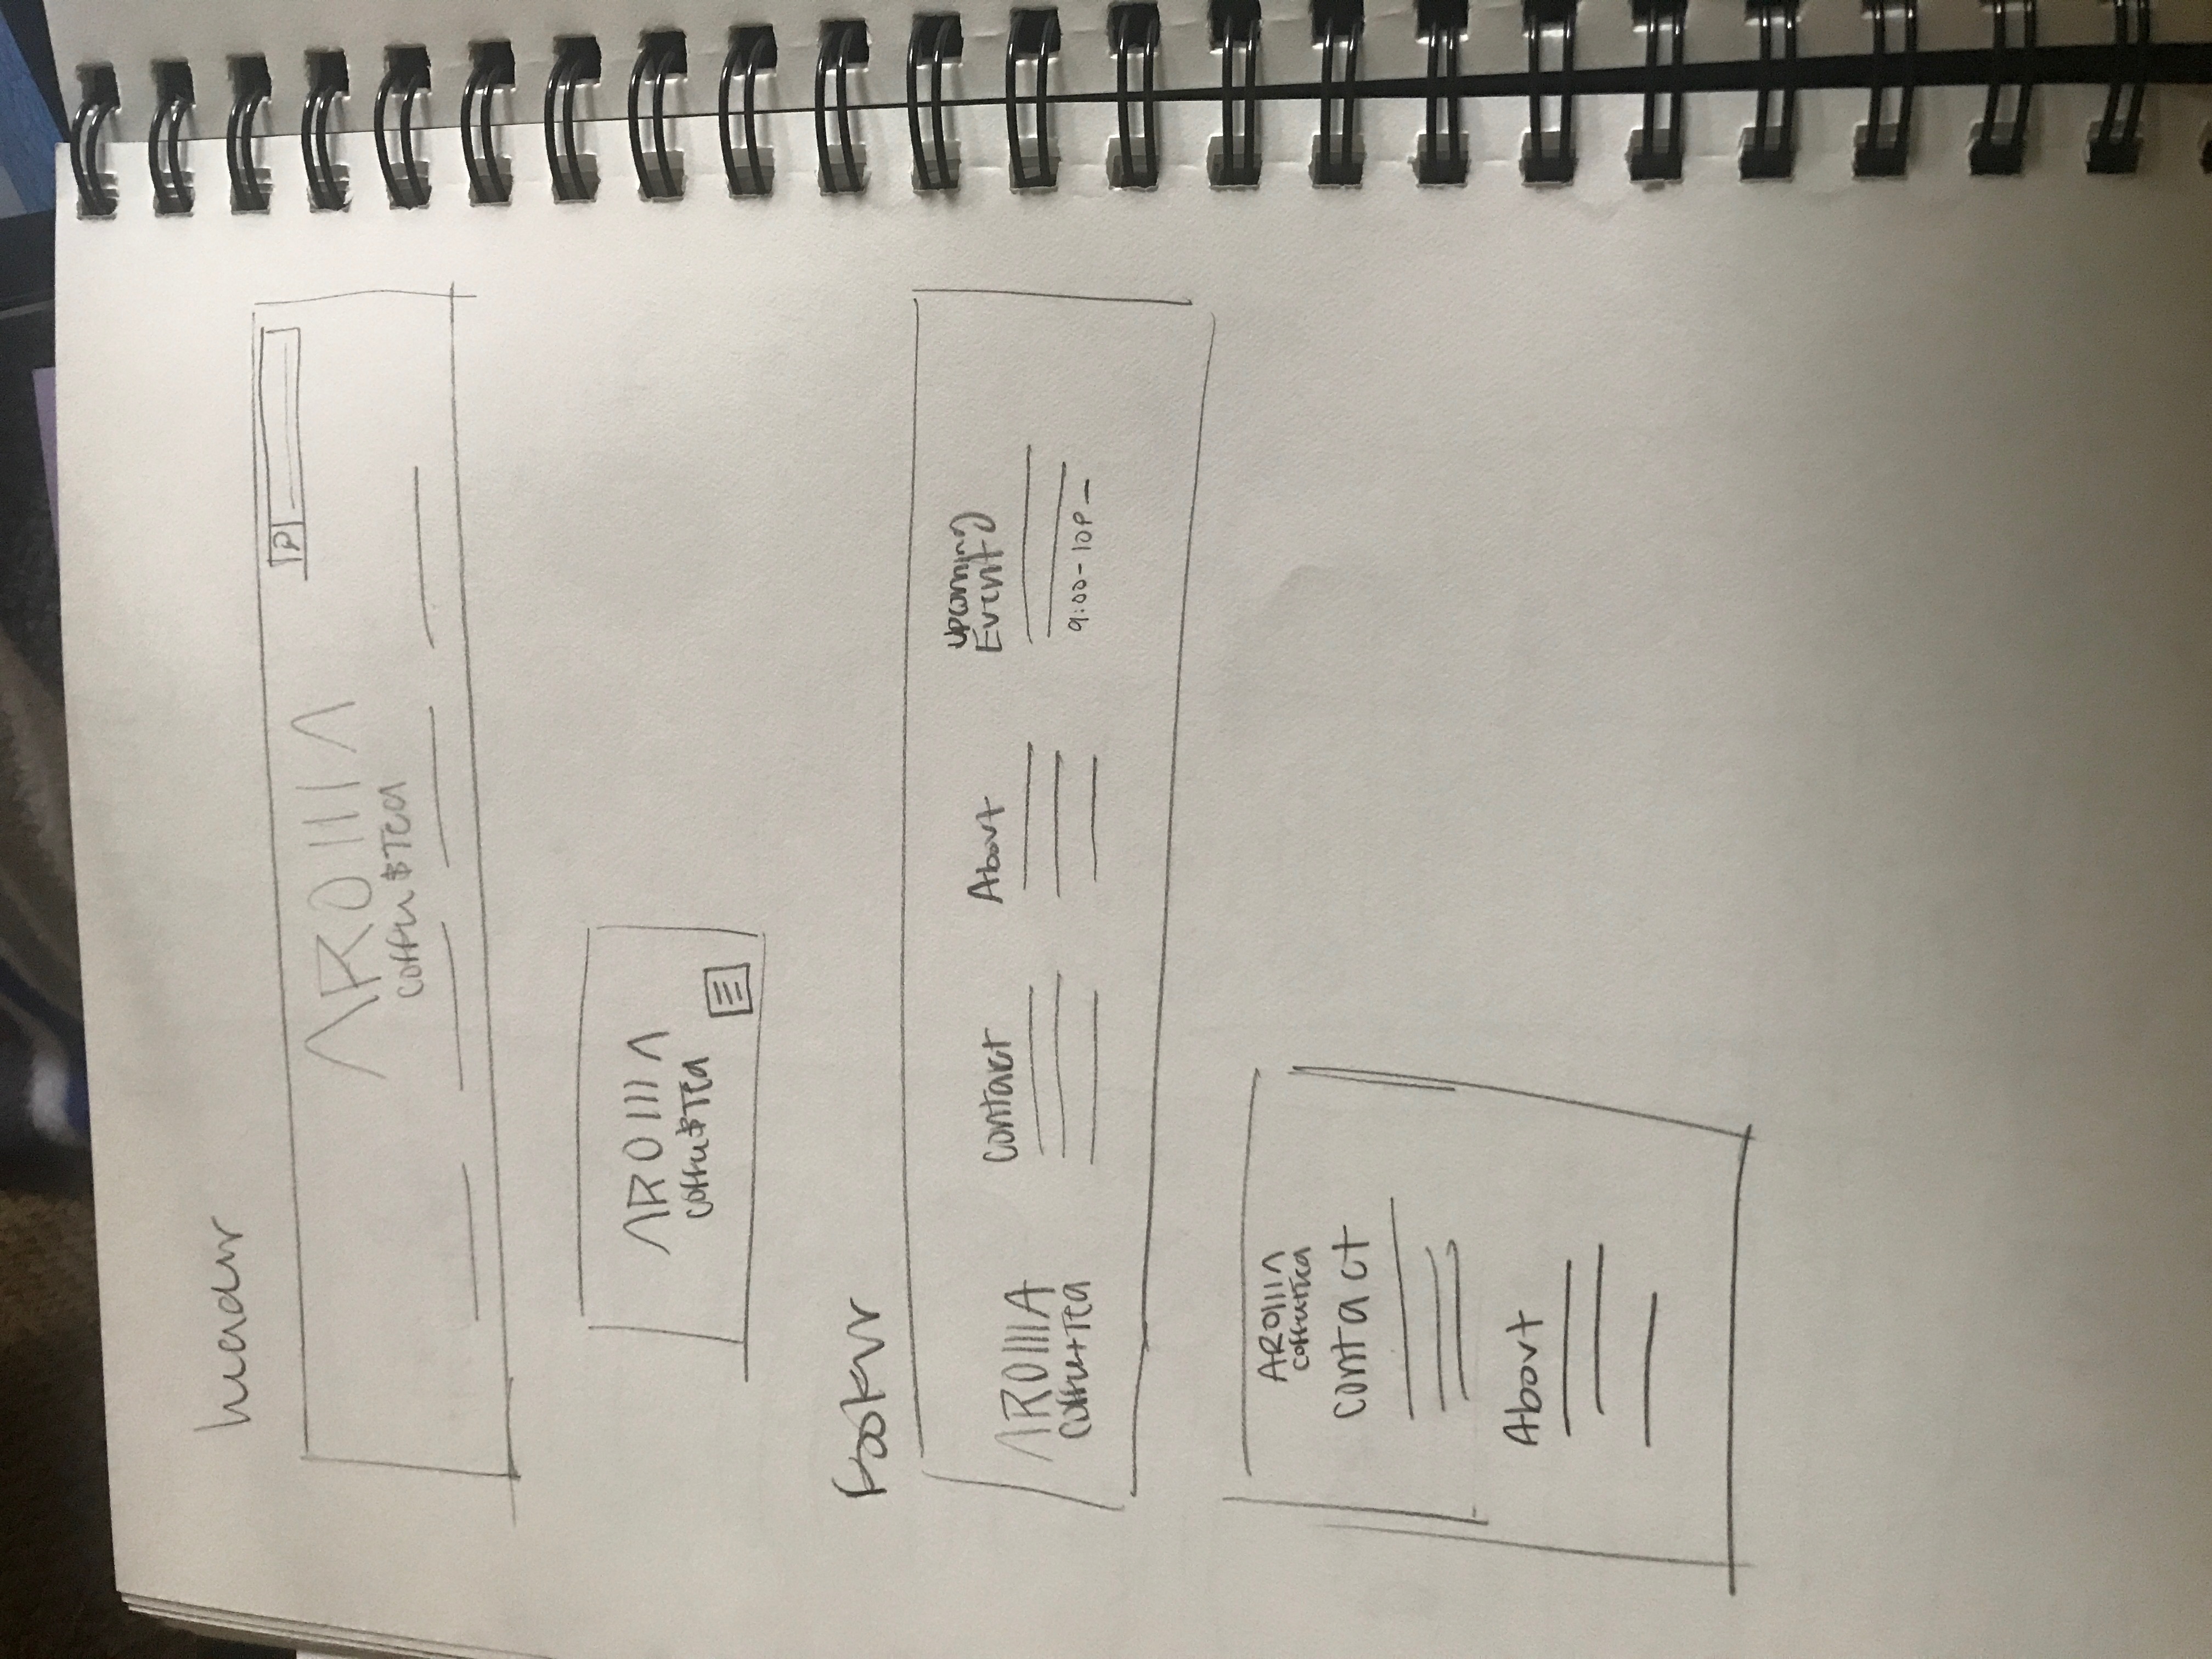 header
AROMA
Coffee & Tea
AROMA
Coffee & Tea
Footer
AROMA
Coffee + Tea
Contact
About
Upcoming
Event
9:00 - 10P
AROMA
Coffee + Tea
Contact
About